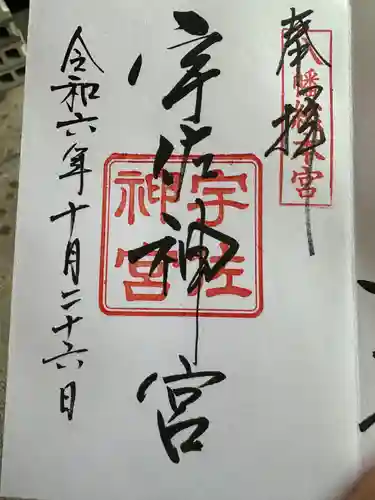 奉拝
八幡総本宮
宇佐神宮
宇佐
神宮
令和六年十月二十六日